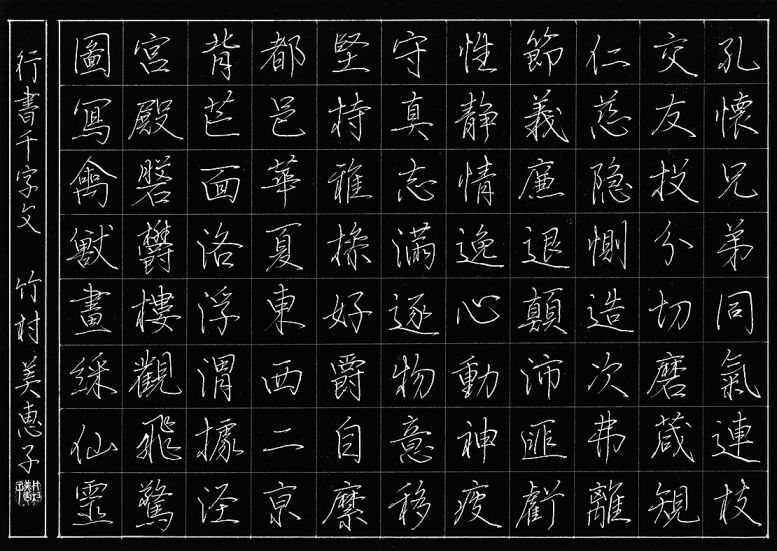 孔懷兄弟同氣連枝
交友投分切磨箴規
仁慈隐惻造次弗離
節義廉退顛沛匪虧
性静情逸心動神疲
守真志滿逐物意移
堅持雅操好爵自縻
都邑華夏東西二京
背芒面洛浮渭據涇
宮殿磐鬱樓觀飛驚
圖寫禽獸畫綵仙靈
行書千字文 竹村美恵子